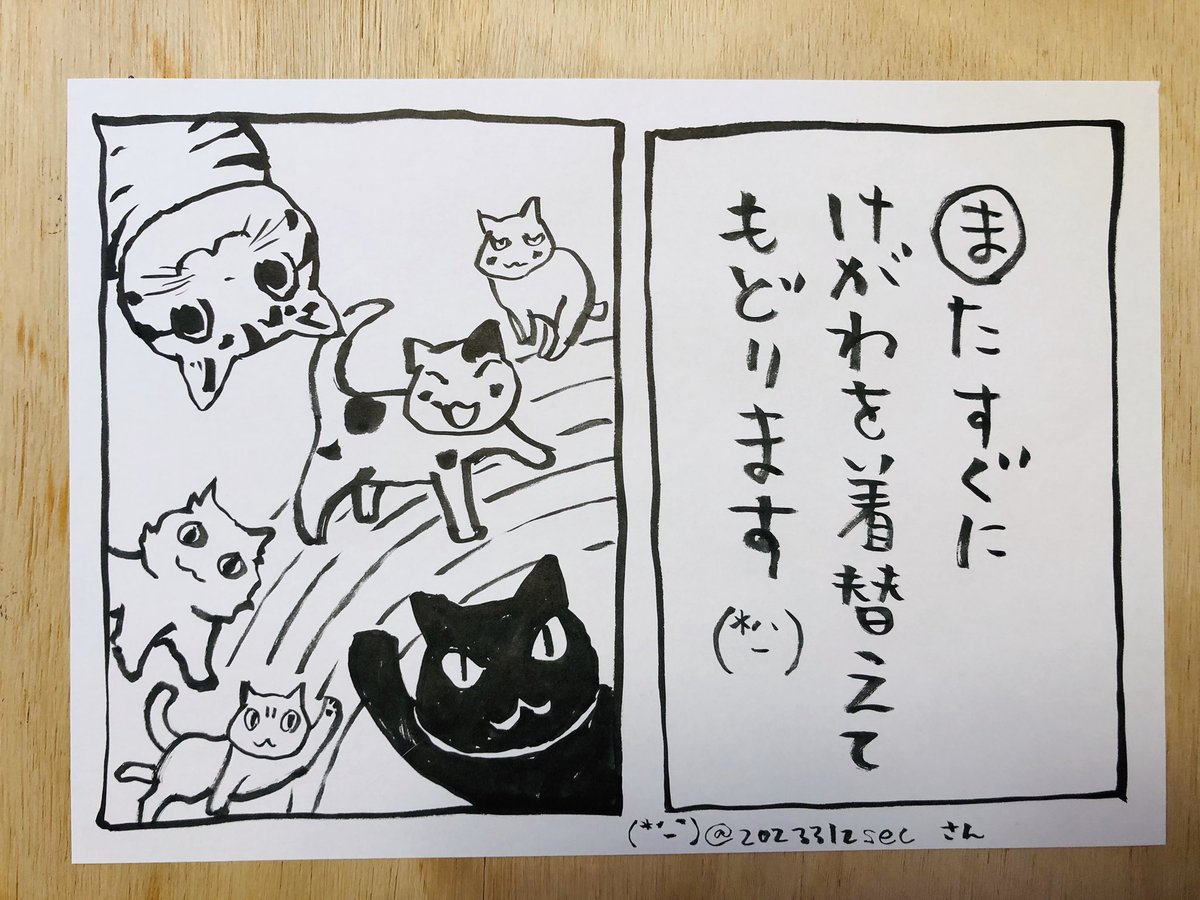 またすぐに
けがわを着替えて
もどります
(*¨-)
(*¨-)@2023312sec さん